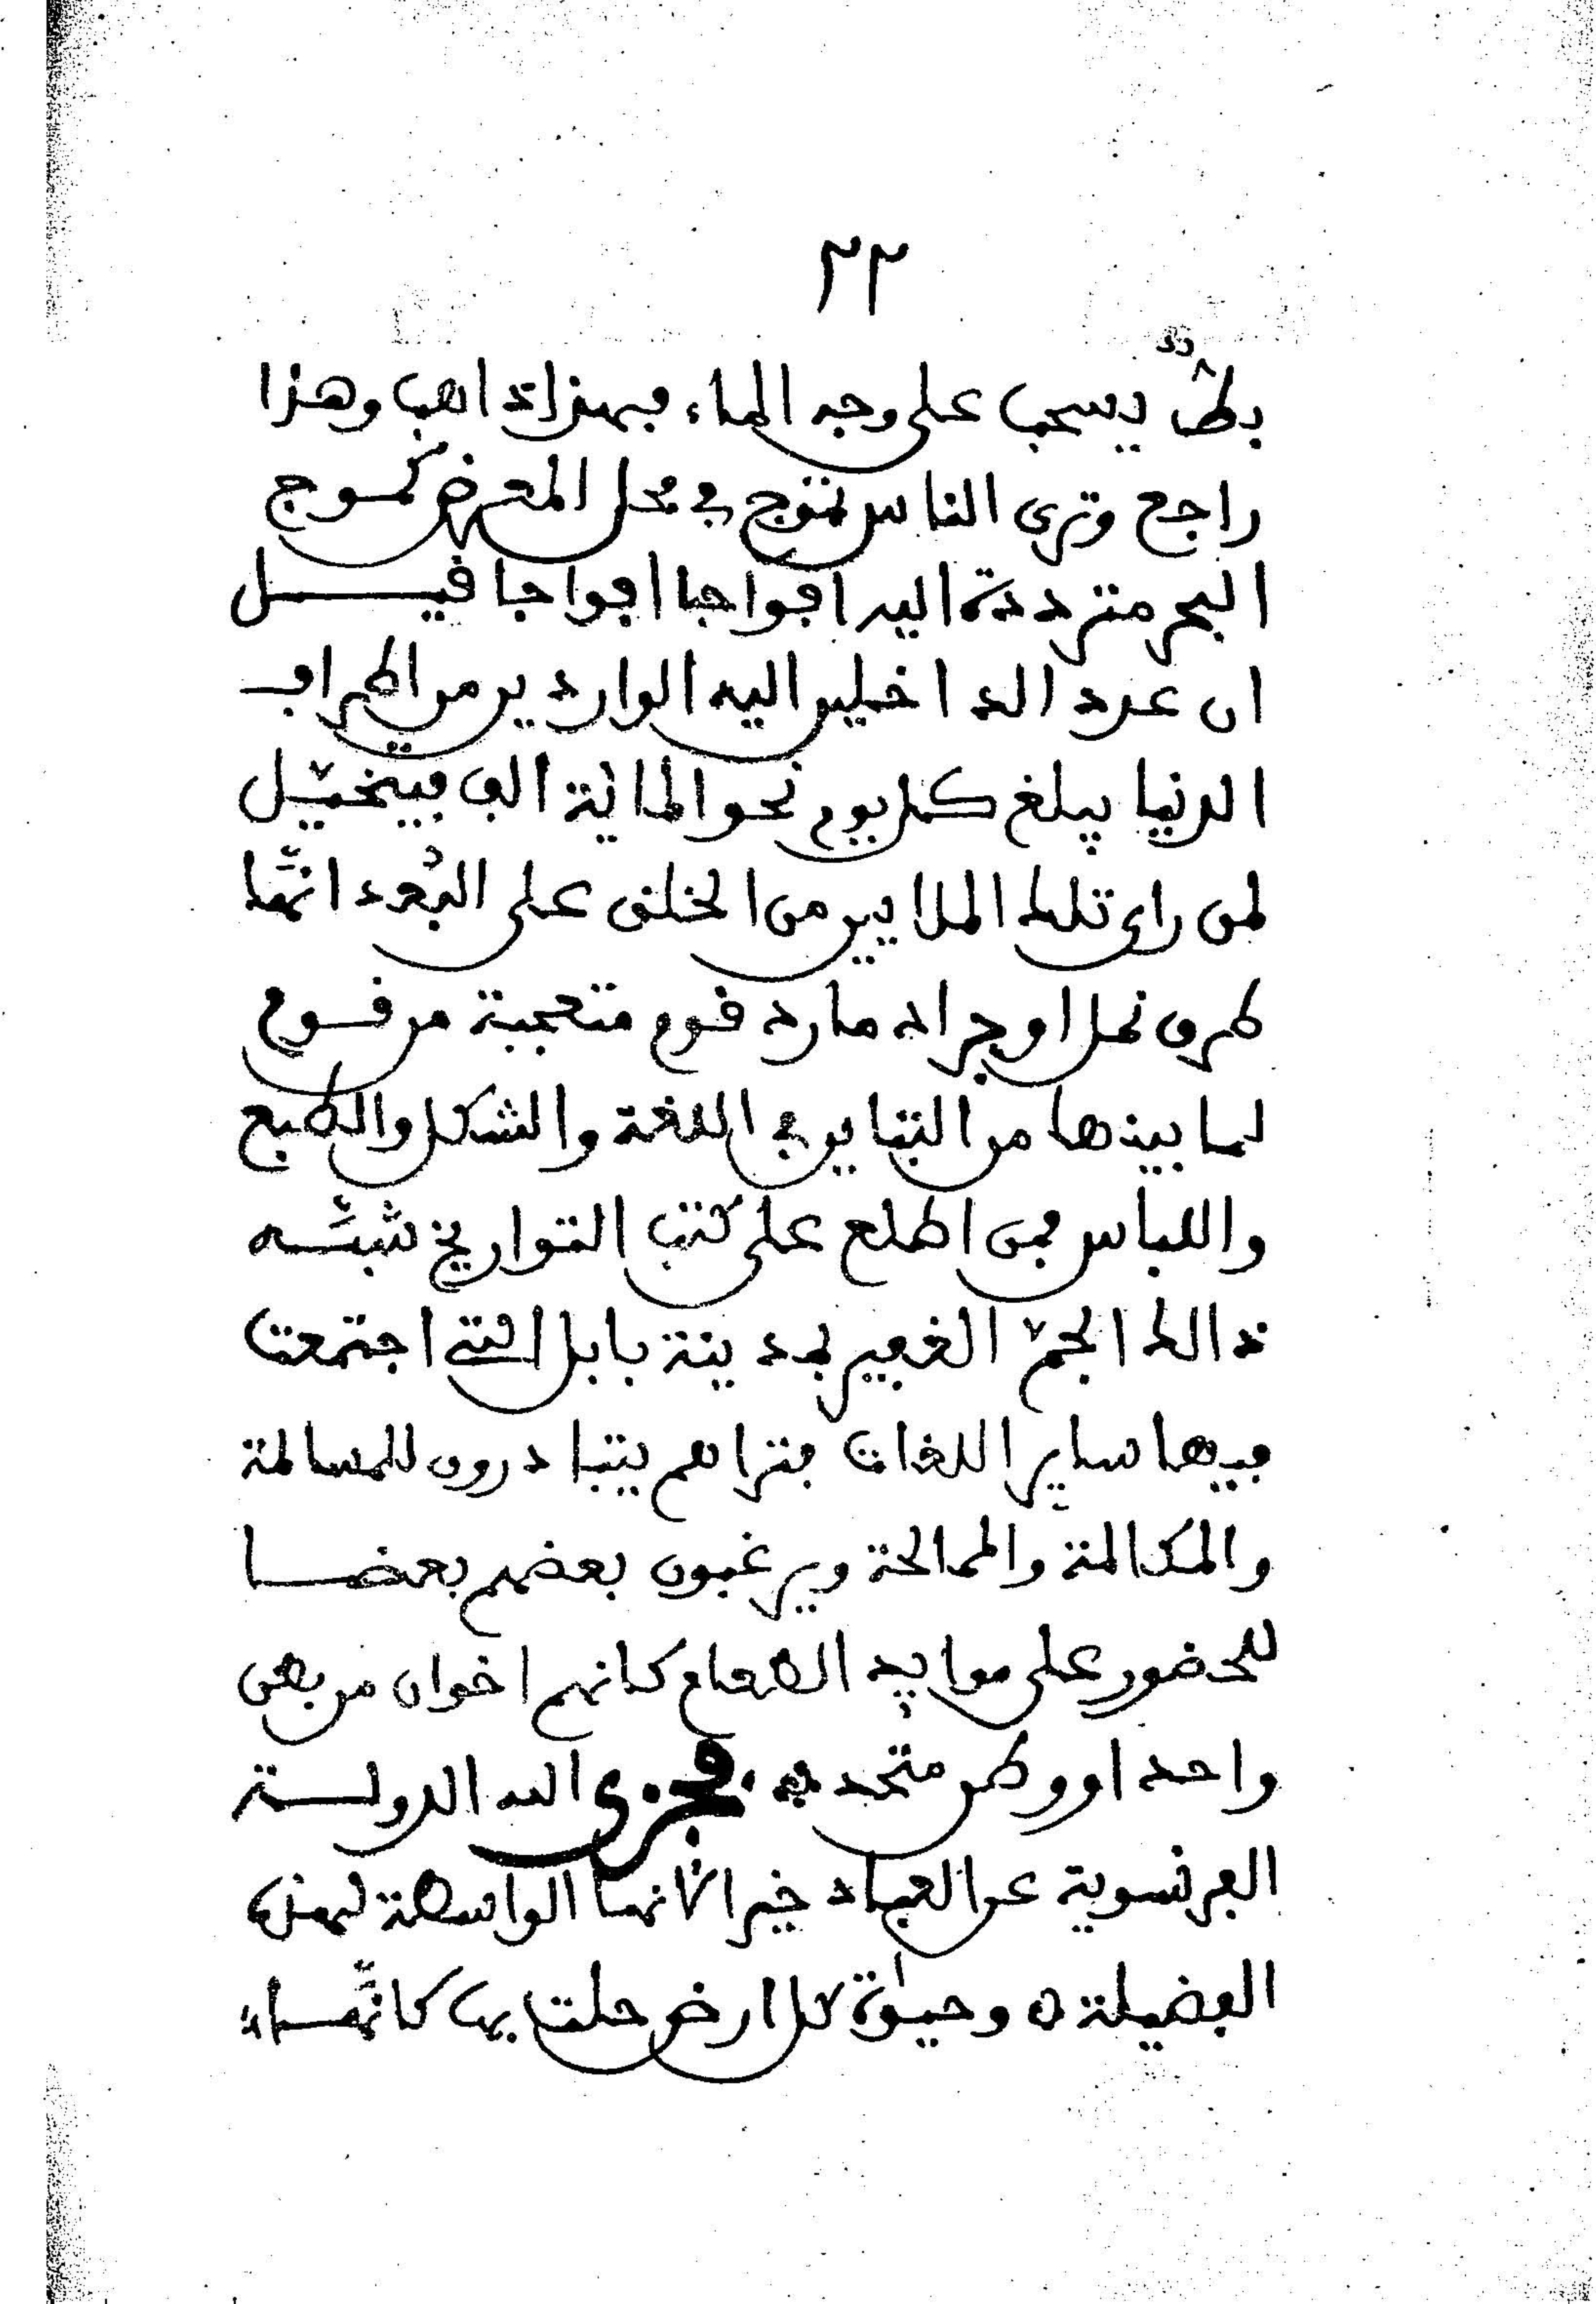 ٢٢
بطٌّ يسحب على وجه الماء فهذا ذاهب وهذا
راجع وترى الناس تموج في محل المعرض كموج
البحر مترددة اليه افواجا افواجا قيل
ان عدد الداخلين اليه الواردين من اطراف
الدنيا يبلغ كل يوم نحو الماية الف فيتخيّل
لمن راى تلك الملايين من الخلق على البُعد انّها
طرف نحل او جراد مارد قوم متعجبة من قوم
لما بينها من التباين في اللغة والشكل والطبع
واللباس فمن اطلع على كتب التواريخ شبّه
ذالك الجمّ الغفير بمدينة بابل التي اجتمعت
فيها ساير اللغات فتراهم يتبادرون للمسالمة
والمكالمة والممالحة ويرغبون بعضهم بعضا
للحضور على موايد الطعام كانهم اخوان من بطن
واحد او وطن متحد ه فجزى الله الدولة
الفرنسوية عن العباد خيرا لانها الواسطة لهذه
الفضيلة ه وحيوة كل ارض حلت بها كانّها